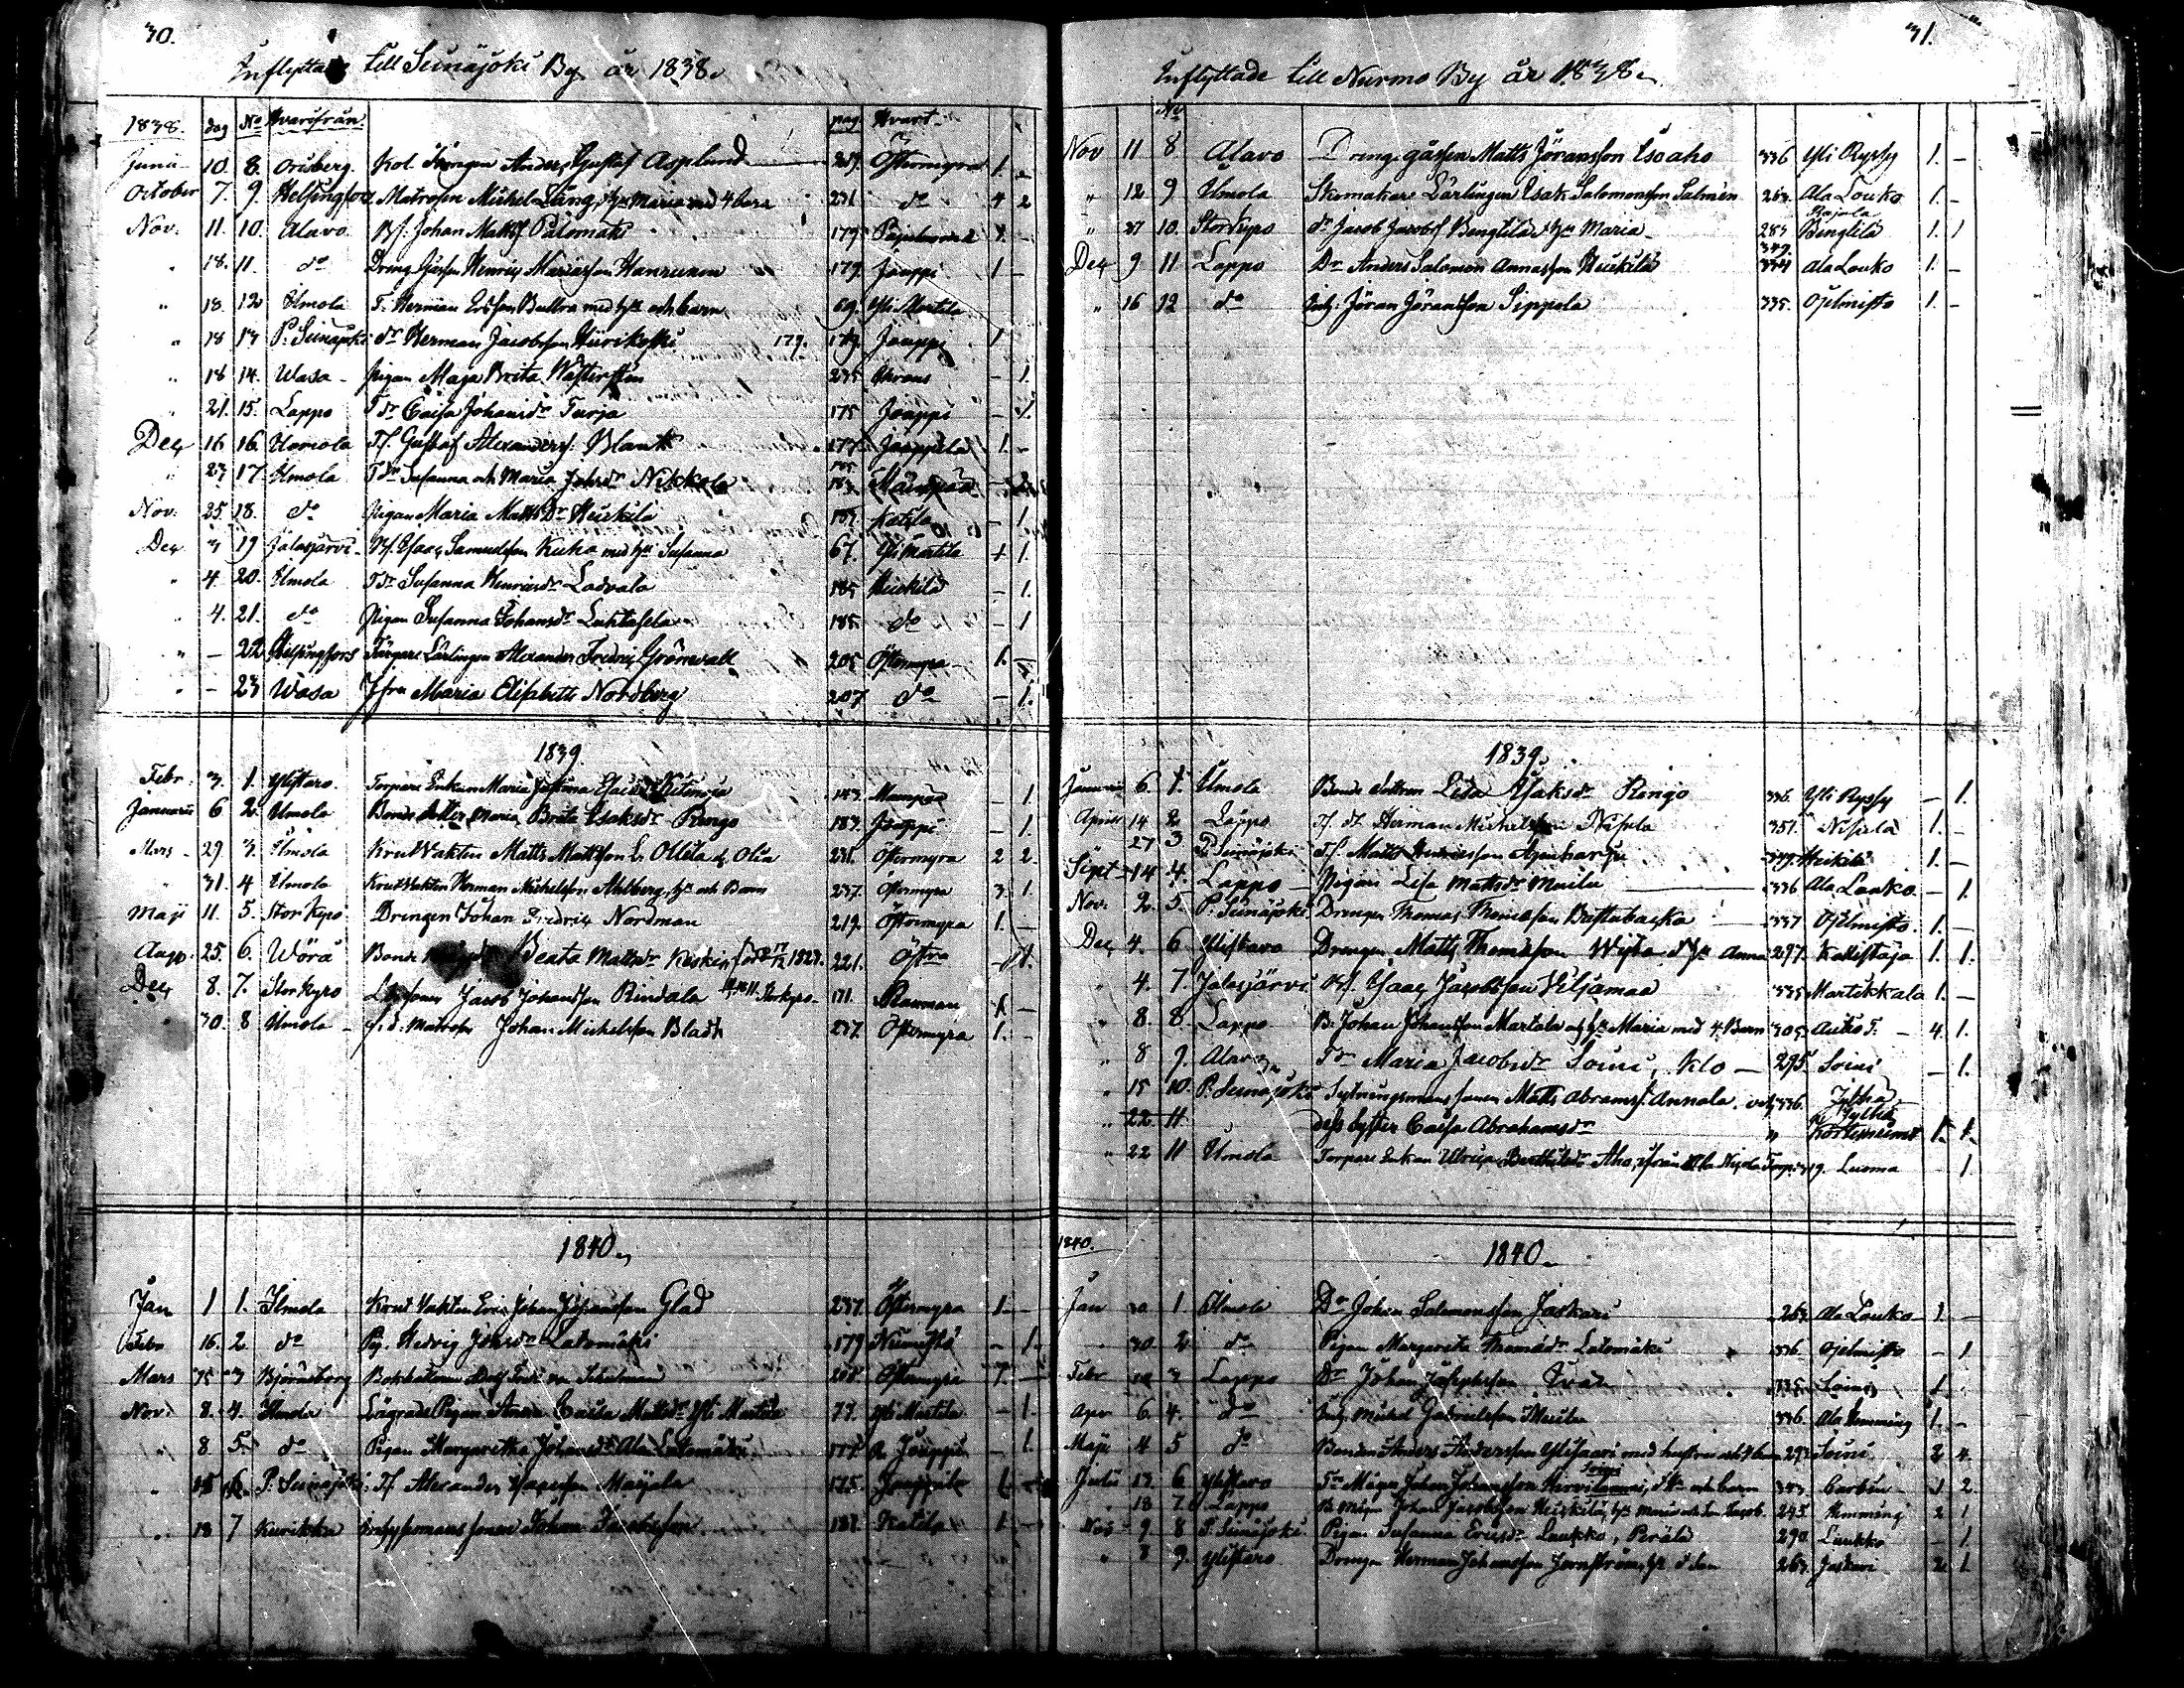 30.
Inflyttade till Seinäjoki By år 1838.
1838. dag No Hvarifrån pag. Hvart
Junii 10. 8. Orisberg. Kol Drengen Anders Gustaf Asplund 219. Östermyra 1. –
October 7. 9. Helsingfors Matrosen Michel Lång, hu Maria med 4 barn 231 do 4 2
Nov. 11. 10. Alavo Bs. Johan Matts. Palomäki 179. 1. –
" 18. 11. do Dreng Gåssen Henric Mariasson Hanrunen 179. Jouppi 1 –
" 18. 12 Ilmola T. Herman Ersson Bullra med hu och barn 69. Yli Martila
" 18 13 P. Seinäjoki dr Herman Jacobsson Hirikoski 179. 179. Jouppi 1
" 18 14. Wasa Pigan Maja Brita Westersten 235 – 1.
" 21. 15. Lappo T dr Caisa Johansdr Turja 175 Jouppi – 1.
Dec 16 16. Ilmola Ts. Gustaf Alexanders. Blank 177. Jouppila 1. –
" 23 17 Ilmola T dr Susanna och Maria Johsdr Nikkola 183. Mäenpää – 2
Nov. 25 18. do Pigan Maria Matts Dr Heikilä 187. Katila – 1.
Dec 3 19 Jalasjärvi Bs. Isaac Samuelsson Kuha med hu Susanna 67. Yli Martila 1 1.
" 4. 20. Ilmola T dr Susanna Henricsdr Ladvala 185 Heikilä – 1.
" 4. 21. do Pigan Susanna Johansdr Luhtasela 185. do – 1
" – 22 Helsingfors Färgare Lärlingen Alexander Fredric Grönvall 205 Östermyra 1. –
" – 23 Wasa Jfru Maria Elisabeth Nordberg 207 do – 1.
1839.
Febr. 3. 1. Ylistaro. Torpare Enkan Maria Justina Esaisdr Kitinoja 143 Mäenpää – 1.
Januarii 6 2. Ilmola Bonde dotter Maria Brita Isaksdr Ringo 183. Jouppi – 1.
Mars 29. 3. Ilmola Krut Vakten Matts Mattsson L. Ollila 231. Östermyra 2 2.
" 31. 4 Ilmola Krut Vakten Herman Michelsson Ahlberg, hu och Barn 237. Östermyra 3. 1.
Maji 11. 5. Storkyro Drengen Johan Fredric Nordman 219. Östermyra 1. –
Aug. 25. 6. Wörå Bonde Beata Mattsdr Keskis född 17/12 1823. 221. Östra – 1.
Dec 8. 7. Storkyro Jacob Johansson Rindala Storkyro 171. Rauman 1. –
30. 8 Ilmola f. d. Matrosen Johan Michelsson Bladh 237. Östermyra 1. –
1840.
Jan 1 1. Ilmola Krut Vakten Eric Johan Johansson Glad 237. Östermyra 1. –
Febr 16. 2. do Pig. Hedvig Johsdr Latvomäki 179 Niemistö – 1.
Mars 15 3 Björneborg Bokhållaren von Schulman 208. Östermyra 1. –
Nov. 8. 4. Ilmola Pigan Anna Caisa Mattsdr Yli Martila 77. Yli Martila – 1.
" 8 5. do Pigan Margaretha Johansdr Ala Latomäki 177. A. Jouppi – 1.
" 15 6. P. Seinäjoki Ts. Alexander Marjala 175. Jouppila 1
" 18 7 Kurikka Johan Jacobsson 187. Katila 1 –
31.
Inflyttade till Nurmo By år 1838.
No
Nov 11 8. Alavo Drengs gåssen Matts Göransson Isoaho 336 Yli Ryssy 1. –
" 12 9 Ilmola Skomakare Lärlingen Isak Salomonsson Salmén 263. Ala Louko 1. –
" 27 10. Storkyro dr Jacob Jacobss Bengtila hu Maria 283 Bengtilä 1. 1
Dec 9 11 Lappo Dr Anders Salomon Annasson Heikilä 334 Ala Louko 1. –
" 16 12 do Inh. Jöran Jöransson Sippola 335. Ojelmisto 1. –
1839.
Januarii 6. 1. Ilmola Bonde dottren Lisa Isaksdr Ringo 336. Yli Ryssy – 1.
April 14 2 Lappo Ts. dr Herman Michelsson Nisula 351. Nisula 1. –
27 3 P. Seinäjoki Ts. Matts Henricsson 349. Heikilä 1. –
Sept 14 4. Lappo Pigan Lisa Mattsdr Muilu 336 Ala Louko – 1.
Nov. 2. 5. P. Seinäjoki Drengen Thomas Thomasson Buttubacka 337 Ojelmisto. 1. –
Dec 4. 6 Ylistaro Drengen Matts Thomasson Wista & hu Anna 297. Kallistaja 1. 1.
" 4. 7. Jalasjärvi Bs. Isaac Jacobsson Viljamaa 335 Martikkala 1. –
" 8. 8. Lappo B. Johan Johansson Martala och hu Maria med 4 Barn 305. Autio T. – 4. 1.
" 8 9. Alavo T dr Maria Jacobsdr Soini, Klo – 295. Soini – 1.
" 15 10. P. Seinäjoki Sytningsmans sonen Matts Abrams. Annala och 336. Jylhä
" 22 11 dess Syster Caisa Abrahamsdr " 1. 1.
" 22 11 Ilmola Torpare Enkan Ulrica Bertilsdr Aho, ifrån Ala Nyrola Torp 319. Luoma – 1.
1840.
1840.
Jan 30 1 Ilmola Dr Johan Salomonsson Jaskari 263. Ala Louko 1. –
" 30. 2 do Pigan Margareta Thomasdr Latomäki 336. Ojelmisto – 1
Febr 3 Lappo Dr Johan Josephsson 335. Soini 1.
Apr 6. 4. do Inh. Michel Gabrielsson Muilu 336. Ala Hemming 1. –
Maji 4 5 do Bonden Anders Andersson Ylisaari med hustru och 4 barn 293 Soini 2 4
Julii 13. 6 Ylistaro Johan Johansson hu och barn 343. Corbin 1 2
" 18 7 Lappo B. Mågen Johan Jacobsson Heikilä, hu Maria och Son Jacob. 245. Hemming 2 1
Nov 9 8 P. Seinäjoki Pigan Susanna Ericsdr Luukko, Präild 290. Luukko – 1
" 8 9. Ylistaro Drengen Herman Johansson Jernström, hu & son 263. Jaskari 2 1